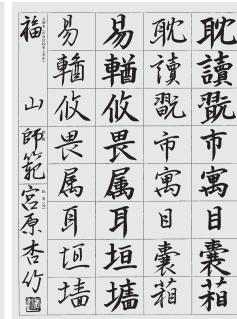 耽讀翫市寓目囊箱
耽讀翫市寓目囊箱
易輶攸畏属耳垣墻
易輶攸畏属耳垣墻
福山 師範 宮原杏竹